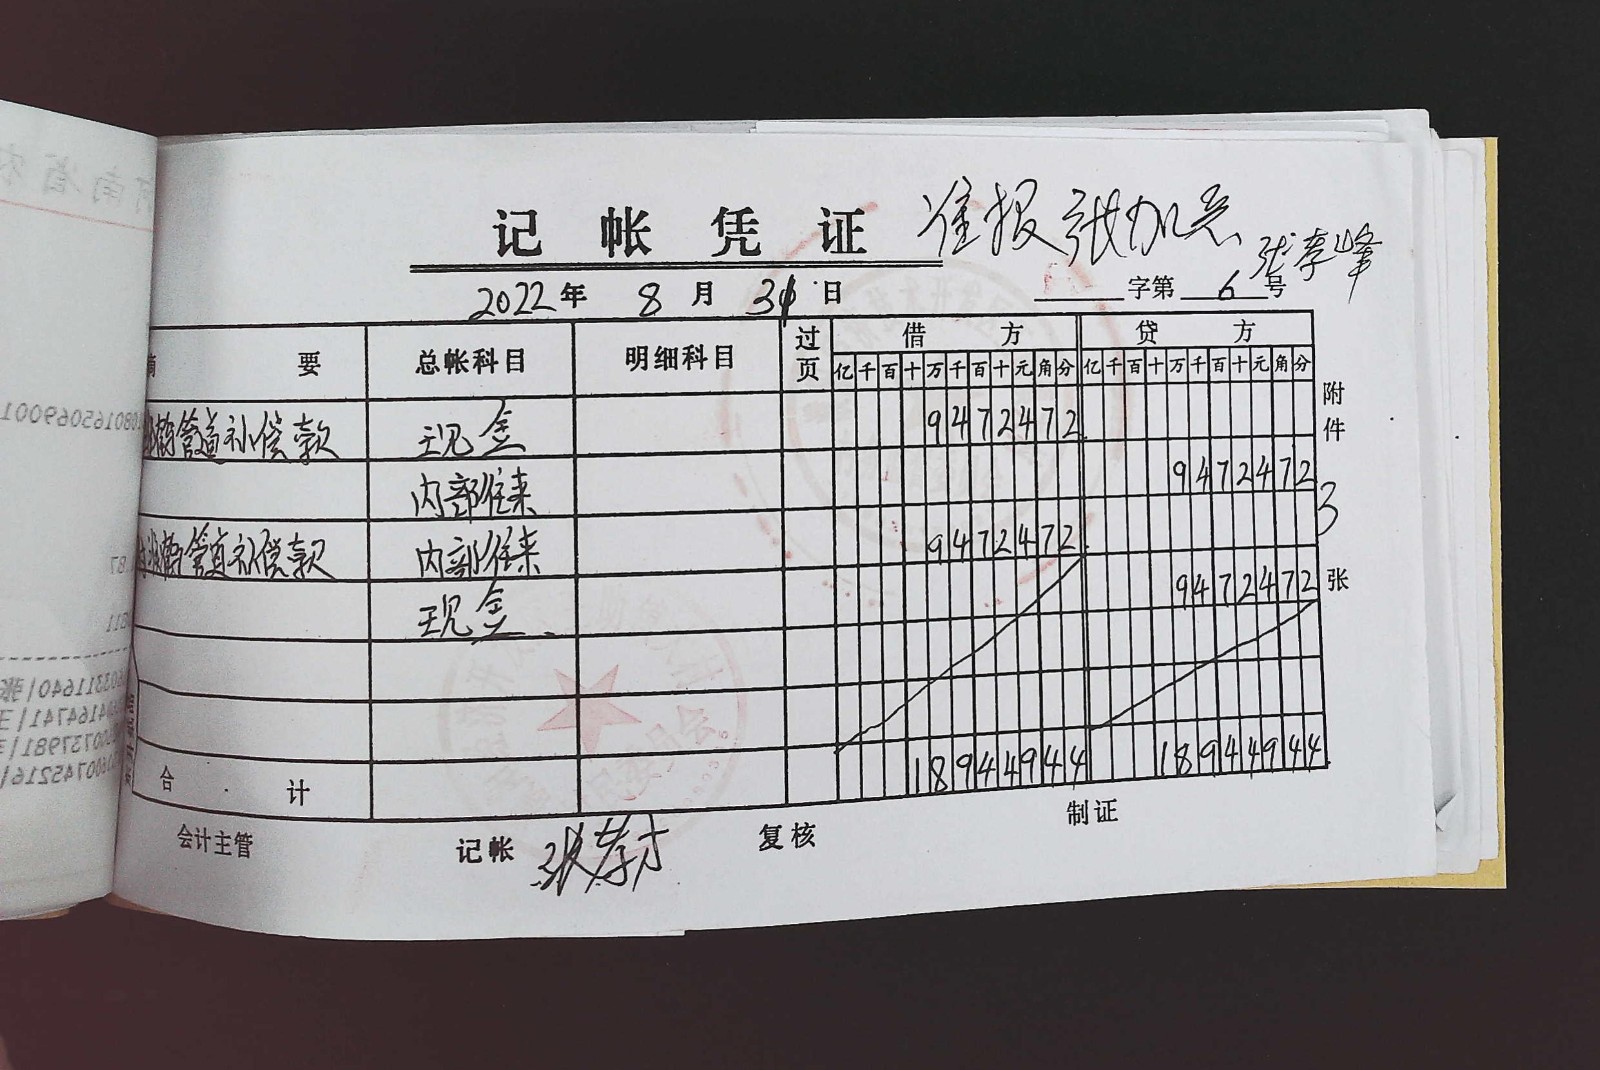 记 帐 凭 证 准报 张
张孝峰
2022年 8 月 31 日 字第 6 号
要 总帐科目 明细科目 过页 借 方 贷 方
亿 千 百 十 万 千 百 十 元 角 分 亿 千 百 十 万 千 百 十 元 角 分
管道补偿款 现金 9472472
内部往来 9472472
管道补偿款 内部往来 9472472
现金 9472472
合 计 18944944 18944944
附件 3 张
会计主管 记帐 张孝才 复核 制证